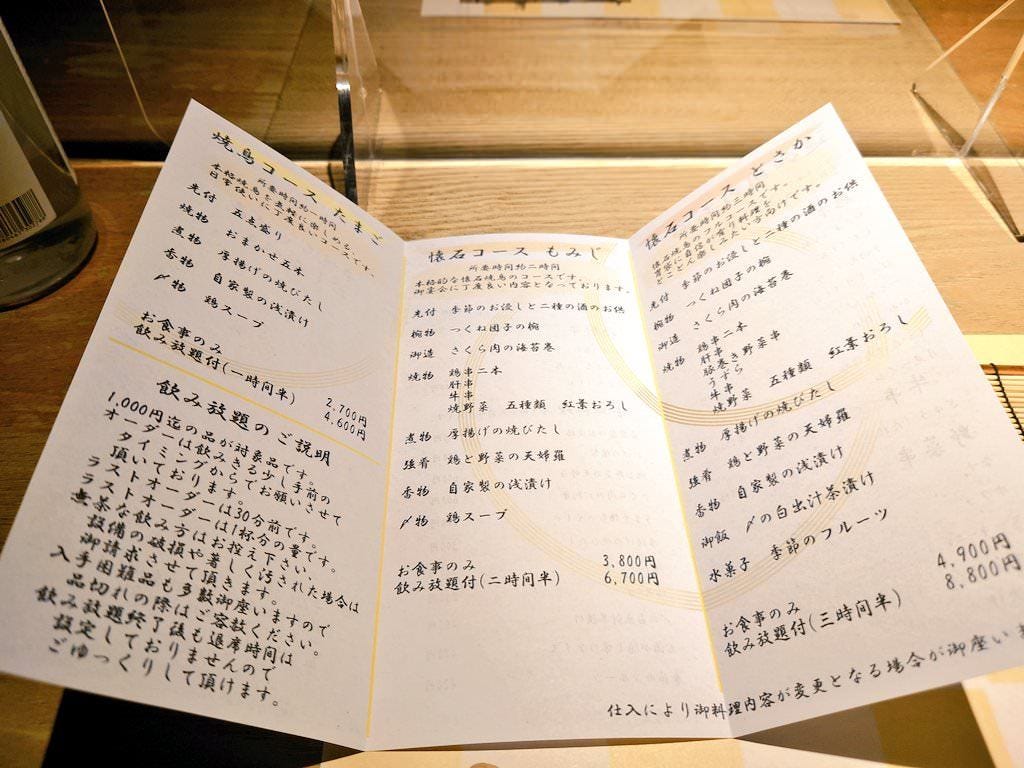 焼鳥コース たまご
所要時間約一時間
本格焼鳥を気軽に楽しめる
日常使いに丁度良いコースです。
先付 五点盛り
焼物 おまかせ五本
煮物 厚揚げの焼びたし
香物 自家製の浅漬け
〆物 鶏スープ
お食事のみ 2,700円
飲み放題付(一時間半) 4,600円
飲み放題のご説明
1,000円迄の品が対象品です。
オーダーは飲みきる少し手前の
タイミングからでお願いさせて
頂いております。
ラストオーダーは30分前です。
ラストオーダーは1杯分の量です。
無茶な飲み方はお控え下さい。
設備の破損や著しく汚された場合は
御請求させて頂きます。
入手困難品も多数御座いますので
品切れの際はご容赦ください。
飲み放題終了後も退席時間は
設定しておりませんので
ごゆっくりして頂けます。
懐石コース もみじ
所要時間約二時間
本格的な懐石焼鳥のコースです。
御宴会に丁度良い内容となっております。
先付 季節のお浸しと二種の酒のお供
椀物 つくね団子の椀
御造 さくら肉の海苔巻
焼物 鶏串二本
肝串
牛串
焼野菜 五種類 紅葉おろし
煮物 厚揚げの焼びたし
強肴 鶏と野菜の天婦羅
香物 自家製の浅漬け
〆物 鶏スープ
お食事のみ 3,800円
飲み放題付(二時間半) 6,700円
懐石コース とさか
所要時間約三時間
懐石焼鳥のフルコースです。
当家に自信が有り料理を
とことん楽しみたい方向けです。
先付 季節のお浸しと二種の酒のお供
椀物 つくね団子の椀
御造 さくら肉の海苔巻
焼物 鶏串二本
肝串
豚巻き野菜串
うずら
牛串
焼野菜 五種類 紅葉おろし
煮物 厚揚げの焼びたし
強肴 鶏と野菜の天婦羅
香物 自家製の浅漬け
御飯 〆の白出汁茶漬け
水菓子 季節のフルーツ
お食事のみ 4,900円
飲み放題付(三時間半) 8,800円
仕入により御料理内容が変更となる場合が御座い